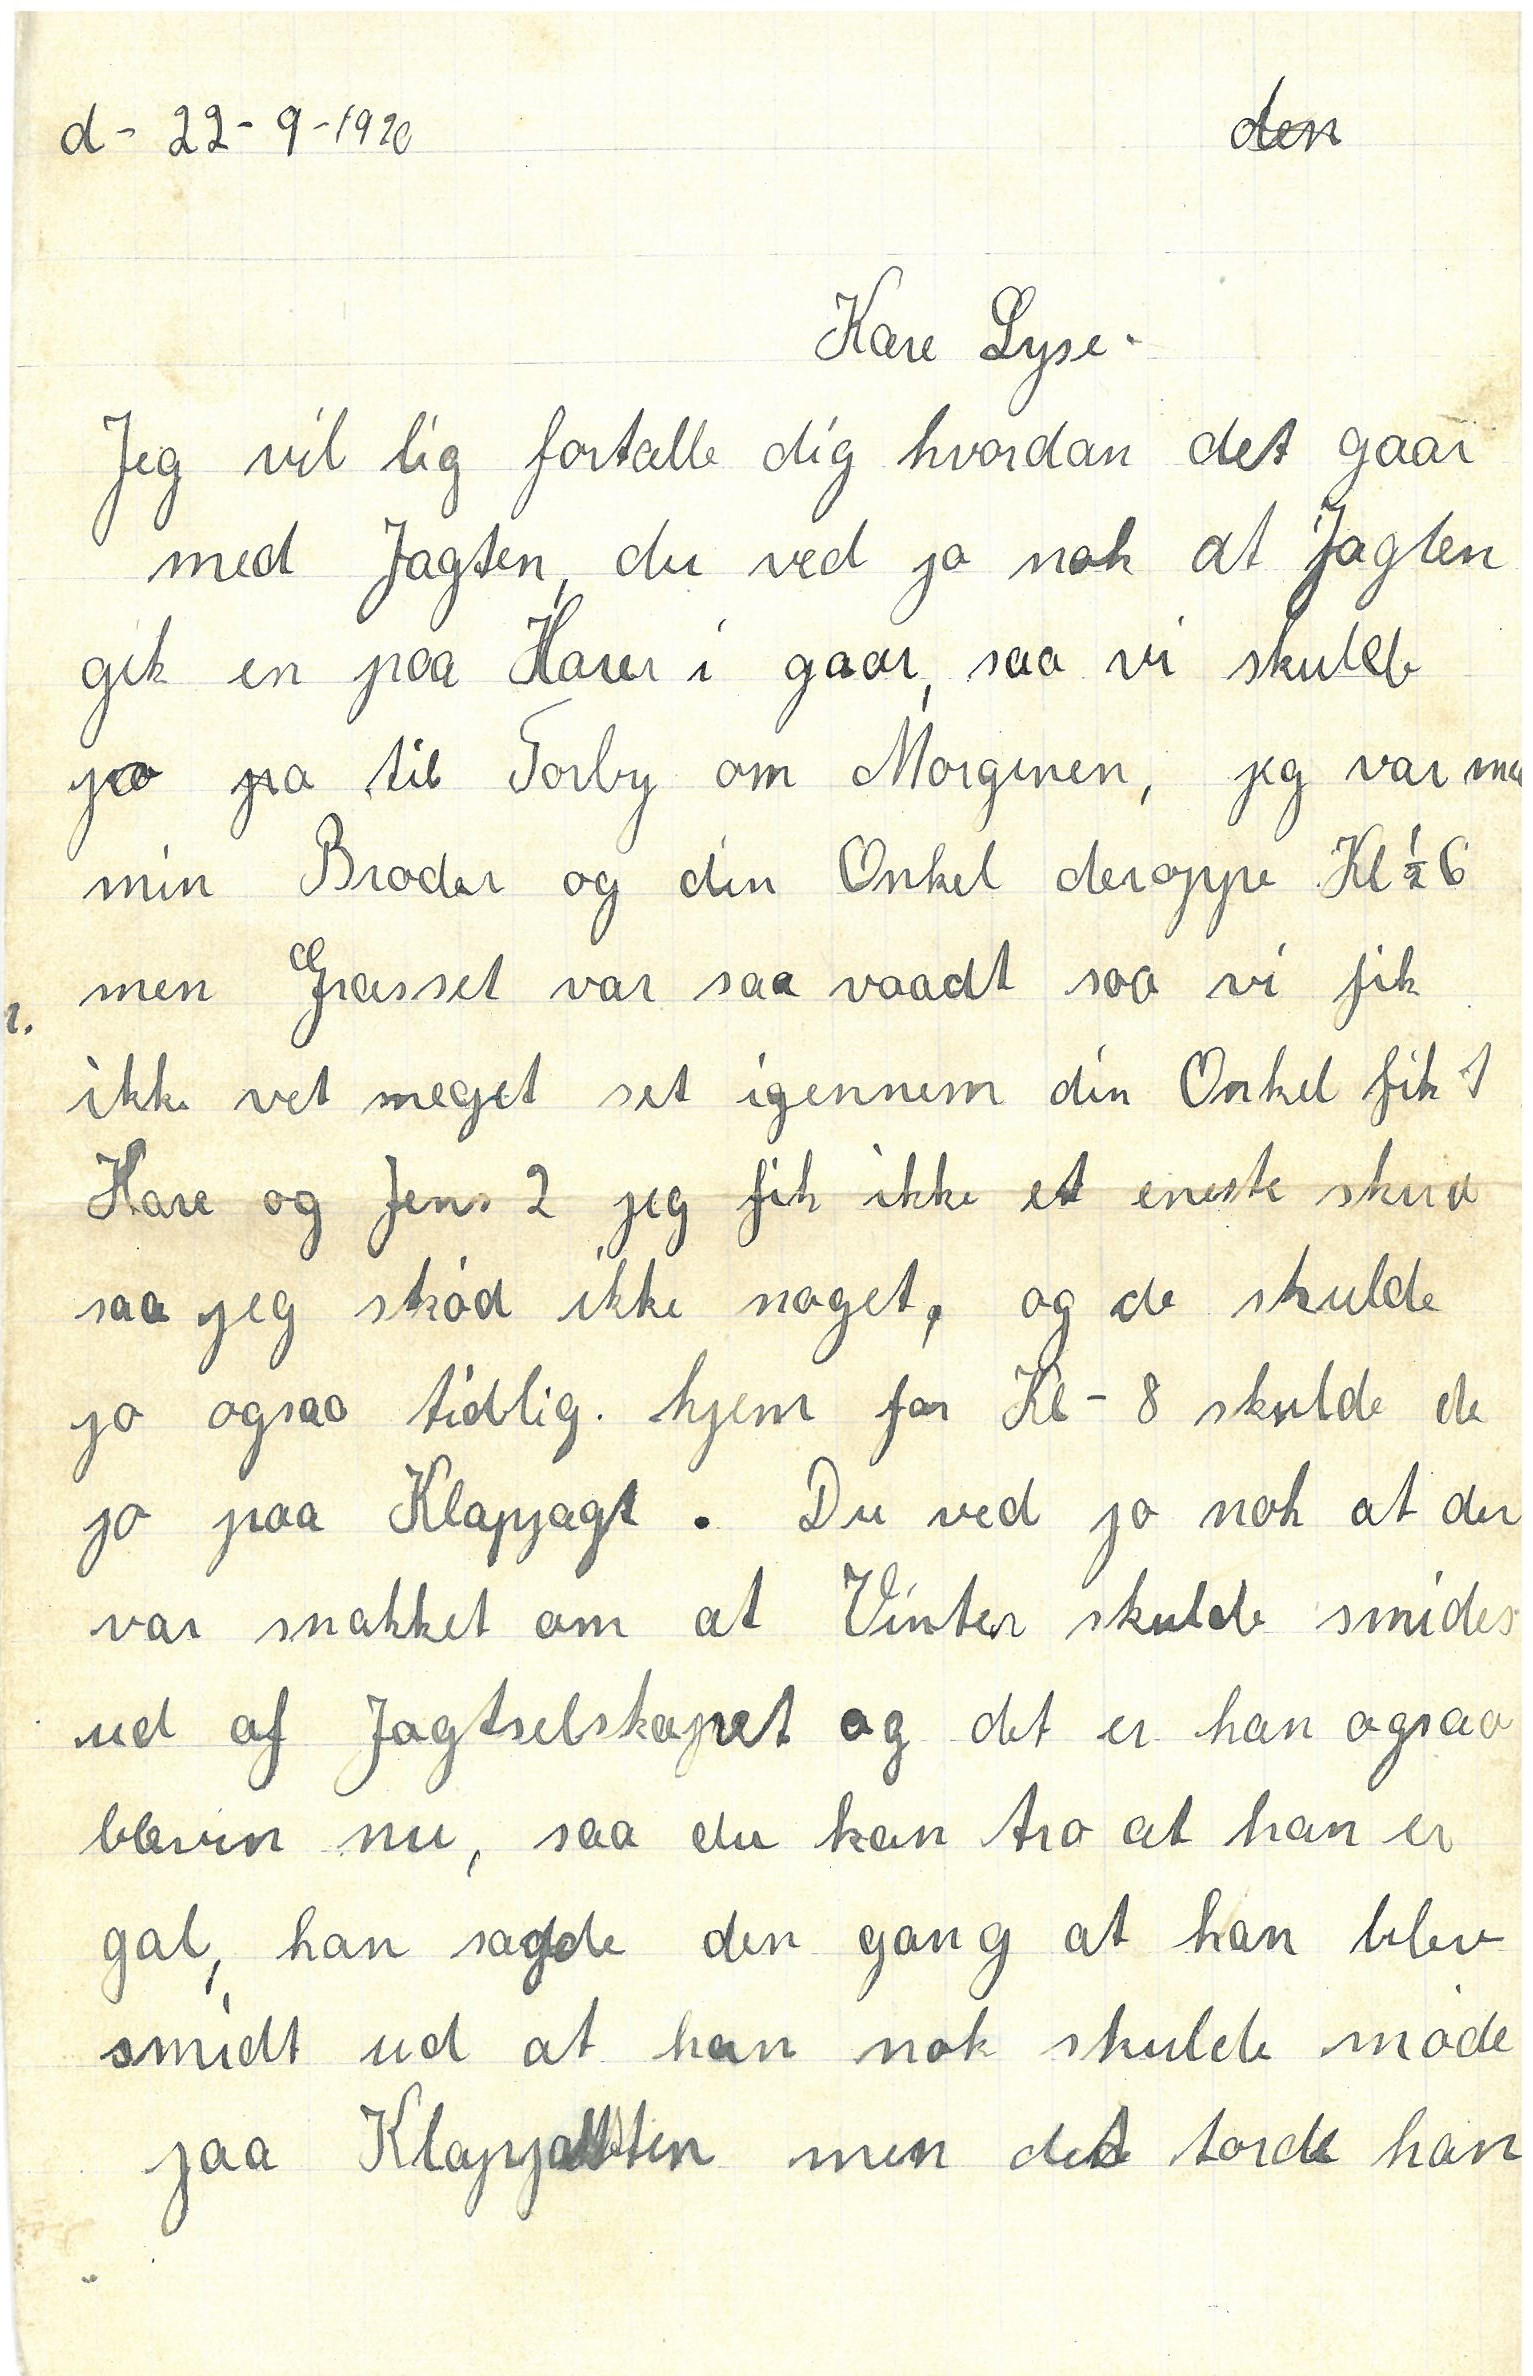 d- 22-9-1920 den
Kære Lyse.
Jeg vil lig fortælle dig hvordan det gaar
med Jagten, du ved jo nok at Jagten
gik en paa Harer i gaar, saa vi skulde
jo pa til Torby om Morgenen, jeg var me
min Broder og din Onkel deroppe Kl ½ 6
men Græsset var saa vaadt saa vi fik
ikke vet meget set igennem din Onkel fik 1
Hare og Jens 2 jeg fik ikke et eneste skud
saa jeg skød ikke noget, og de skulde
jo ogsaa tidlig. hjem for Kl - 8 skulde de
jo paa Klapjagt. Du ved jo nok at der
var snakket om at Vinter skulde smides
ud af Jagtselskapet og det er han ogsaa
bleven nu, saa du kan tro at han er
gal, han sagde den gang at han blev
smidt ud at han nok skulde møde
paa Klapjagten men det torde han